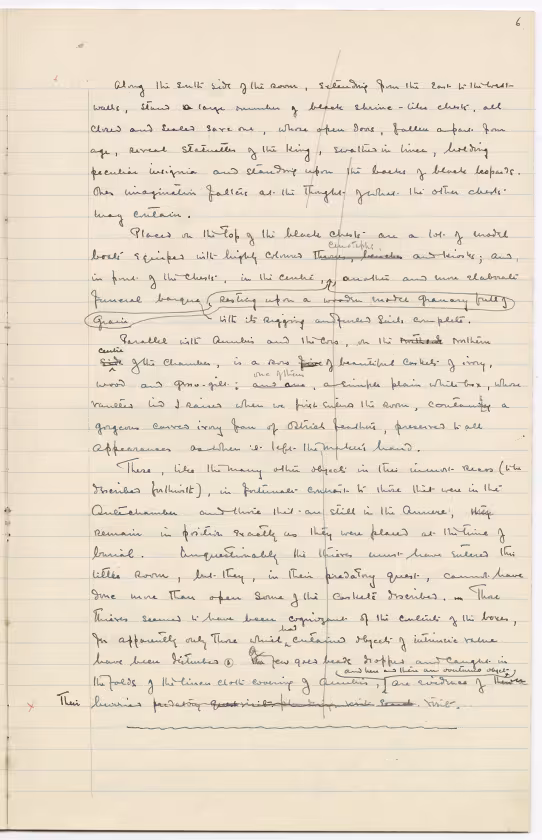 6
Along the South side of the room, extending from the East to the West
walls, stand a large number of black shrine-like chests, all
closed and sealed save one, whose open doors, fallen apart from
age, reveal statuettes of the King, swathed in linen, holding
peculiar insignia and standing upon the backs of black leopards.
Ones imagination falters at the thought of what the other chests
may contain.
Placed on the top of the black chests are a lot of model
boats equipped with highly coloured thrones, and kiosks; and,
in front of the chests, in the centre, another and more elaborate
funereal barque, resting upon a wooden model granary full of
Grain with its rigging and furled sails complete.
Parallel with Anubis and the Cow, on the Northern
centre
side of the chamber, is a row of beautiful caskets of ivory,
one of them
wood and gesso-gilt; and one, a simple plain white box, whose
vaulted lid I raised when we first entered the room, containing a
gorgeous carved ivory fan of ostrich feathers, preserved to all
appearances as when it left the maker's hand.
These, like the many other objects in this inmost recess (to be
described forthwith), in fortunate contrast to those that were in the
Antechamber and those that are still in the Annexe, they
remain in position exactly as they were placed at the time of
burial. Unquestionably the thieves must have entered this
little room, but they, in their predatory quest, cannot have
done more than open some of the caskets described. Those
thieves seemed to have been cognizant of the contents of the boxes,
had
for apparently only those which contained objects of intrinsic value
have been disturbed. few gold beads dropped and caught in
(and here and there an overturned object)
the folds of the linen cloth covering of Anubis, are evidences of
Their hurried predatory visit.